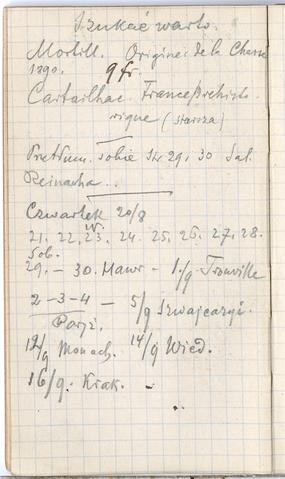 Szukać warto.
Mortill. Origine de la Chasse
1890. 9 fr.
Cartailhac. France Préhisto
rique (starsza)
sobie str 29, 30 Sal.
Reinacha..
Czwartek 20/8
21. 22. 23. 24. 25. 26. 27. 28.
Sob.
29. – 30. Havr – 1/9 Trouville
2–3–4 – 5/9 Szwajcarji.
Paryż.
12/9 Monach. 14/9 Wied.
16/9. Krak.